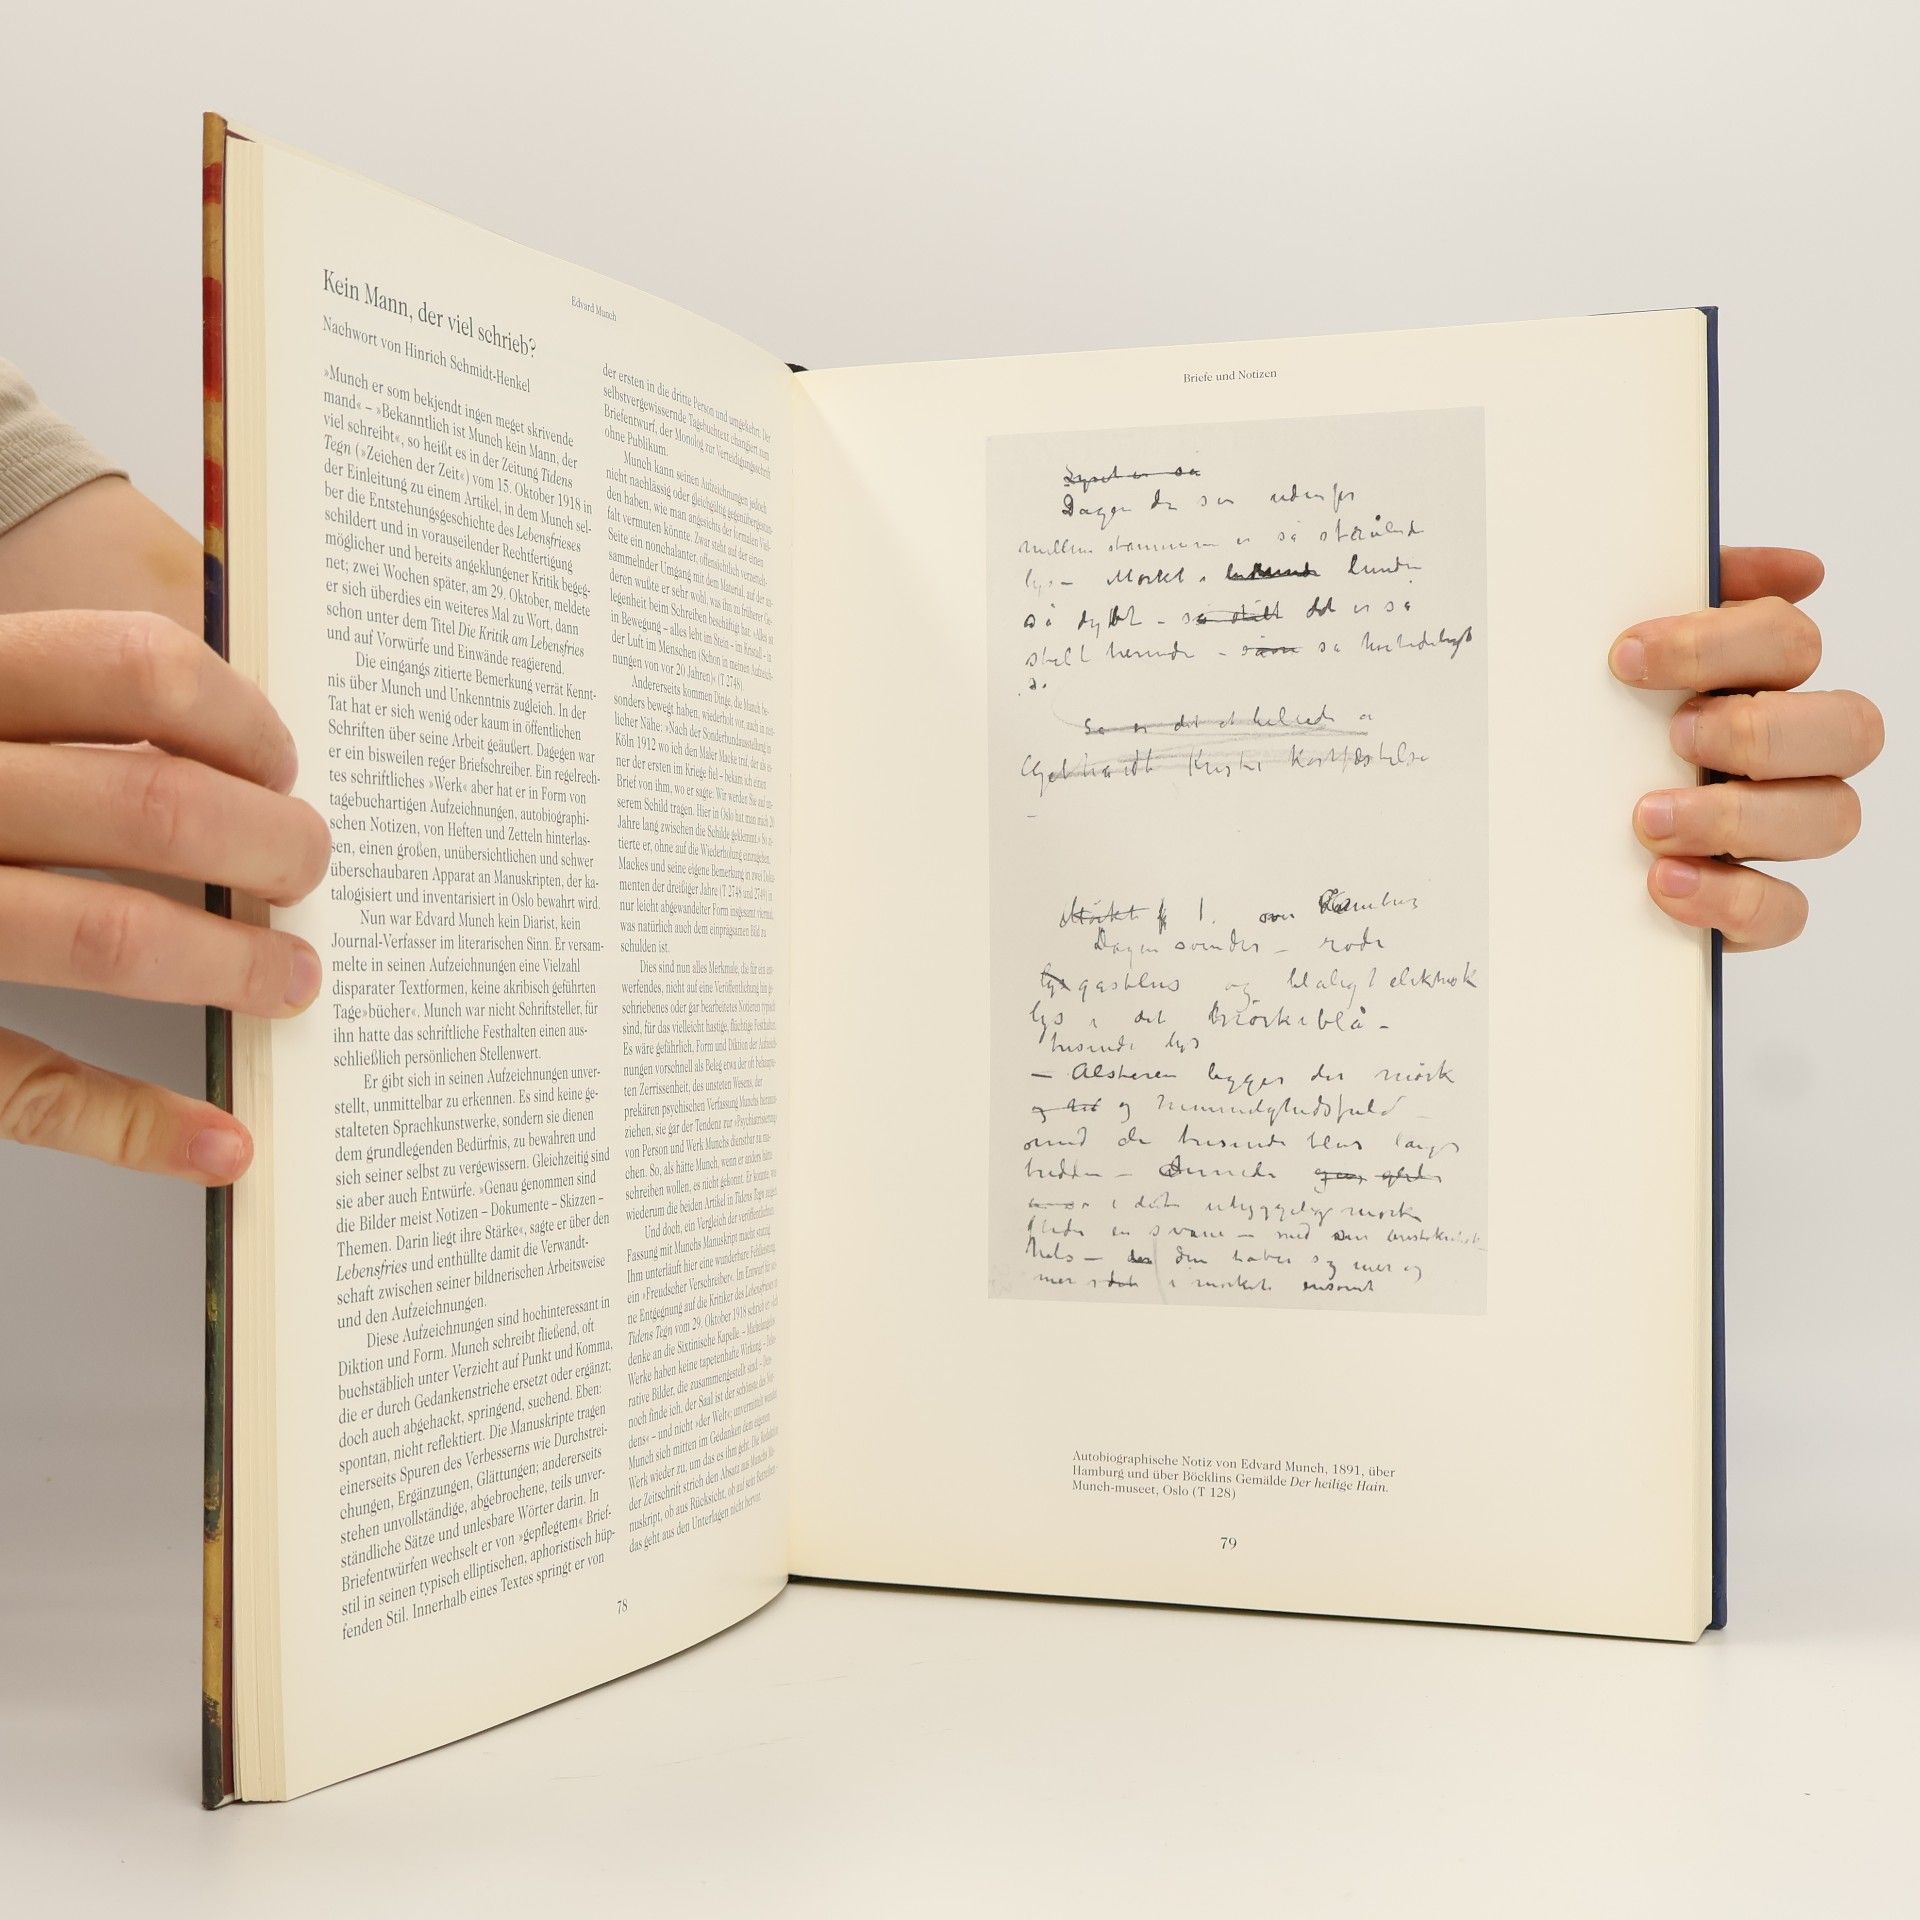 Edvard Munch
Kein Mann, der viel schrieb?
Nachwort von Hinrich Schmidt-Henkel
»Munch er som bekjendt ingen meget skrivende
mand« – »Bekanntlich ist Munch kein Mann, der
viel schreibt«, so heißt es in der Zeitung Tidens
Tegn (»Zeichen der Zeit«) vom 15. Oktober 1918 in
der Einleitung zu einem Artikel, in dem Munch sel-
ber die Entstehungsgeschichte des Lebensfrieses
schildert und in vorauseilender Rechtfertigung
möglicher und bereits angeklungener Kritik begeg-
net; zwei Wochen später, am 29. Oktober, meldete
er sich überdies ein weiteres Mal zu Wort, dann
schon unter dem Titel Die Kritik am Lebensfries
und auf Vorwürfe und Einwände reagierend.
Die eingangs zitierte Bemerkung verrät Kennt-
nis über Munch und Unkenntnis zugleich. In der
Tat hat er sich wenig oder kaum in öffentlichen
Schriften über seine Arbeit geäußert. Dagegen war
er ein bisweilen reger Briefschreiber. Ein regelrech-
tes schriftliches »Werk« aber hat er in Form von
tagebuchartigen Aufzeichnungen, autobiographi-
schen Notizen, von Heften und Zetteln hinterlas-
sen, einen großen, unübersichtlichen und schwer
überschaubaren Apparat an Manuskripten, der ka-
talogisiert und inventarisiert in Oslo bewahrt wird.
Nun war Edvard Munch kein Diarist, kein
Journal-Verfasser im literarischen Sinn. Er versam-
melte in seinen Aufzeichnungen eine Vielzahl
disparater Textformen, keine akribisch geführten
Tage»bücher«. Munch war nicht Schriftsteller, für
ihn hatte das schriftliche Festhalten einen aus-
schließlich persönlichen Stellenwert.
Er gibt sich in seinen Aufzeichnungen unver-
stellt, unmittelbar zu erkennen. Es sind keine ge-
stalteten Sprachkunstwerke, sondern sie dienen
dem grundlegenden Bedürfnis, zu bewahren und
sich seiner selbst zu vergewissern. Gleichzeitig sind
sie aber auch Entwürfe. »Genau genommen sind
die Bilder meist Notizen – Dokumente – Skizzen –
Themen. Darin liegt ihre Stärke«, sagte er über den
Lebensfries und enthüllte damit die Verwandt-
schaft zwischen seiner bildnerischen Arbeitsweise
und den Aufzeichnungen.
Diese Aufzeichnungen sind hochinteressant in
Diktion und Form. Munch schreibt fließend, oft
buchstäblich unter Verzicht auf Punkt und Komma,
die er durch Gedankenstriche ersetzt oder ergänzt;
doch auch abgehackt, springend, suchend. Eben:
spontan, nicht reflektiert. Die Manuskripte tragen
einerseits Spuren des Verbesserns wie Durchstrei-
chungen, Ergänzungen, Glättungen; andererseits
stehen unvollständige, abgebrochene, teils unver-
ständliche Sätze und unlesbare Wörter darin. In
Briefentwürfen wechselt er von »gepflegtem« Brief-
stil in seinen typisch elliptischen, aphoristisch hüp-
fenden Stil. Innerhalb eines Textes springt er von
der ersten in die dritte Person und umgekehrt: Der
selbstvergewissernde Tagebuchtext changiert zum
Briefentwurf, der Monolog zur Verteidigungsschrift
ohne Publikum.
Munch kann seinen Aufzeichnungen jedoch
nicht nachlässig oder gleichgültig gegenübergestan-
den haben, wie man angesichts der formalen Viel-
falt vermuten könnte. Zwar steht auf der einen
Seite ein nonchalanter, offensichtlich
sammelnder Umgang mit dem Material, auf der an-
deren wußte er sehr wohl, was ihn zu früherer Ge-
legenheit beim Schreiben beschäftigt hat: »Alles ist
in Bewegung – alles lebt im Stein – im Kristall – in
der Luft im Menschen (Schon in meinen Aufzeich-
nungen von vor 20 Jahren)« (T 2748).
Andererseits kommen Dinge, die Munch be-
sonders bewegt haben, wiederholt vor, auch in zeit-
licher Nähe: »Nach der Sonderbundausstellung in
Köln 1912 wo ich den Maler Macke traf, der als ei-
ner der ersten im Kriege fiel – bekam ich einen
Brief von ihm, wo er sagte: Wir werden Sie auf un-
serem Schild tragen. Hier in Oslo hat man mich 20
Jahre lang zwischen die Schilde geklemmt.« So zi-
tierte er, ohne auf die Wiederholung einzugehen,
Mackes und seine eigene Bemerkung in zwei Doku-
menten der dreißiger Jahre (T 2748 und 2749) in
nur leicht abgewandelter Form insgesamt viermal,
was natürlich auch dem einprägsamen Bild zu
schulden ist.
Dies sind nun alles Merkmale, die für ein ent-
werfendes, nicht auf eine Veröffentlichung hin ge-
schriebenes oder gar bearbeitetes Notieren typisch
sind, für das vielleicht hastige, flüchtige Festhalten.
Es wäre gefährlich, Form und Diktion der Aufzeich-
nungen vorschnell als Beleg etwa der oft behaup-
ten Zerrissenheit, des unsteten Wesens, der
prekären psychischen Verfassung Munchs heranzu-
ziehen, sie gar der Tendenz zur »Psychiatrisierung«
von Person und Werk Munchs dienstbar zu ma-
chen. So, als hätte Munch, wenn er anders hätte
schreiben wollen, es nicht gekonnt. Er konnte, wie
wiederum die beiden Artikel in Tidens Tegn zeigen.
Und doch, ein Vergleich der veröffentlichten
Fassung mit Munchs Manuskript macht stutzig:
Ihm unterläuft hier eine wunderbare Fehlleistung,
ein »Freudscher Verschreiber«. Im Entwurf für sei-
ne Entgegnung auf die Kritiker des Lebensfrieses in
Tidens Tegn vom 29. Oktober 1918 schrieb er: »Ich
denke an die Sixtinische Kapelle – Michelangelos
Werke haben keine tapetenhafte Wirkung – Deko-
rative Bilder, die zusammengestellt sind –
noch finde ich, der Saal ist der schönste des Nor-
dens« – und nicht »der Welt«; unvermittelt wendet
Munch sich mitten im Gedanken dem eigenen
Werk wieder zu, um das es ihm geht. Die Redaktion
der Zeitschrift strich den Absatz aus Munchs Ma-
nuskript, ob aus Rücksicht, ob auf sein Betreiben –
das geht aus den Unterlagen nicht hervor.
78
Briefe und Notizen
Dagen der
så
lys – Mørkt i lunden
så dybt – så stille det er så
stille herinde – så
Kristi Korsfæstelse
1. over Hamburg
Dagen svinder – røde
gasblus og blåligt elektrisk
lys i det mørkeblå –
tusinde lys
– Alsteren ligger der mørk
og hemmelighedsfuld –
med de tusinde blus langs
bredden –
i det uhyggelige mørke
glider en svane – med sin
hals – den hæver sig mer og
mer i mørket ensomt
Autobiographische Notiz von Edvard Munch, 1891, über
Hamburg und über Böcklins Gemälde Der heilige Hain.
Munch-museet, Oslo (T 128)
79